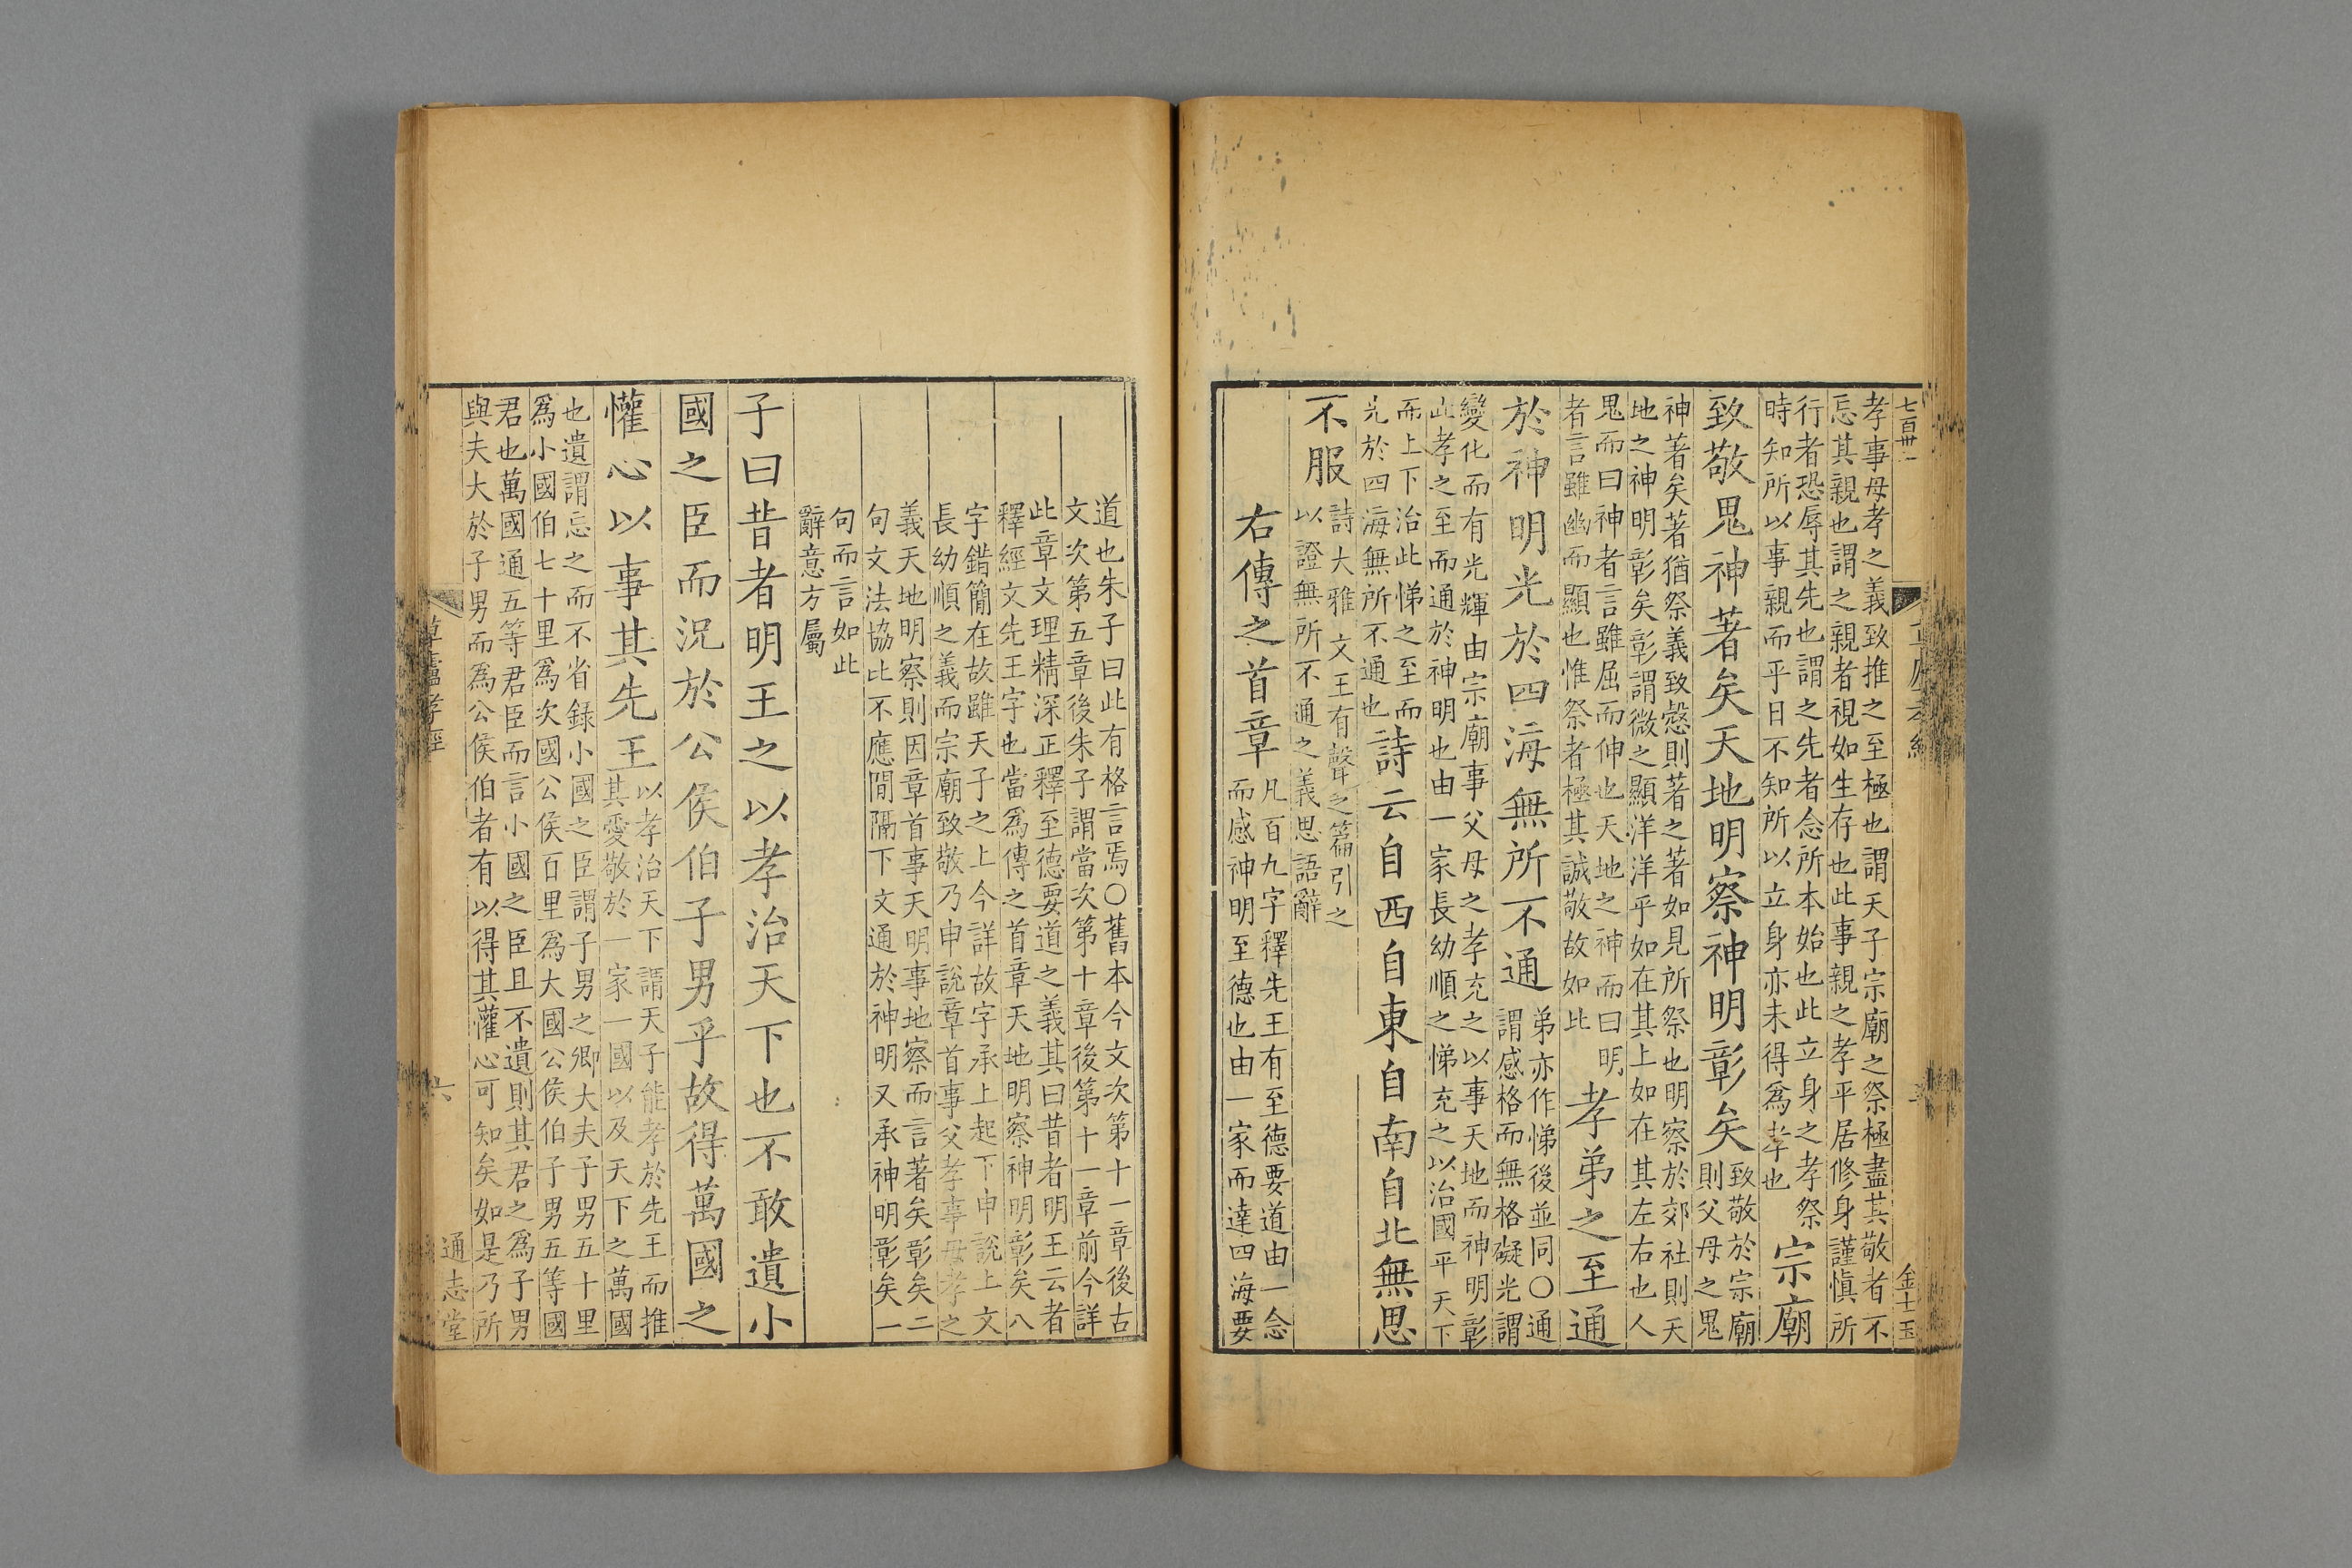 七百卅一
金士玉
孝事母孝之義致推之至極也謂天子宗廟之祭極盡其敬者不
忘其親也謂之親者視如生存也此事親之孝平居修身謹慎所
行者恐辱其先也謂之先者念所本始也此立身之孝祭
時知所以事親而平日不知所以立身亦未得為孝也
宗廟
致敬鬼神著矣天地明察神明彰矣
致敬於宗廟
則父母之鬼
神著矣著猶祭義致愨則著之著如見所祭也明察於郊社則天
地之神明彰矣彰謂微之顯洋洋乎如在其上如在其左右也人
鬼而曰神者言雖屈而伸也天地之神而曰明
者言雖幽而顯也惟祭者極其誠敬故如此
孝弟之至通
於神明光於四海無所不通
弟亦作悌後並同○通
謂感格而無格礙光謂
變化而有光輝由宗廟事父母之孝充之以事天地而神明彰
此孝之至而通於神明也由一家長幼順之悌充之以治國平天下
而上下治此悌之至而
光於四海無所不通也
詩云自西自東自南自北無思
不服
詩大雅文王有聲之篇引之
以證無所不通之義思語辭
右傳之首章
凡百九字釋先王有至德要道由一念
而感神明至德也由一家而達四海要
道也朱子曰此有格言焉○舊本今文次第十一章後古
文次第五章後朱子謂當次第十章後第十一章前今詳
此章文理精深正釋至德要道之義其曰昔者明王云者
釋經文先王字也當為傳之首章天地明察神明彰矣八
字錯簡在故雖天子之上今詳故字承上起下申說上文
長幼順之義而宗廟致敬乃申說章首事父孝事母孝之
義天地明察則因章首事天明事地察而言著矣彰矣二
句文法協比不應間隔下文通於神明又承神明彰矣一
句而言如此
辭意方屬
子曰昔者明王之以孝治天下也不敢遺小
國之臣而況於公侯伯子男乎故得萬國之
懽心以事其先王
以孝治天下謂天子能孝於先王而推
其愛敬於一家一國以及天下之萬國
也遺謂忘之而不省録小國之臣謂子男之卿大夫子男五十里
為小國伯七十里為次國公侯百里為大國公侯伯子男五等國
君也萬國通五等君臣而言小國之臣且不遺則其君之為子男
與夫大於子男而為公侯伯者有以得其懽心可知矣如是乃所
草廬孝經
六
通志堂